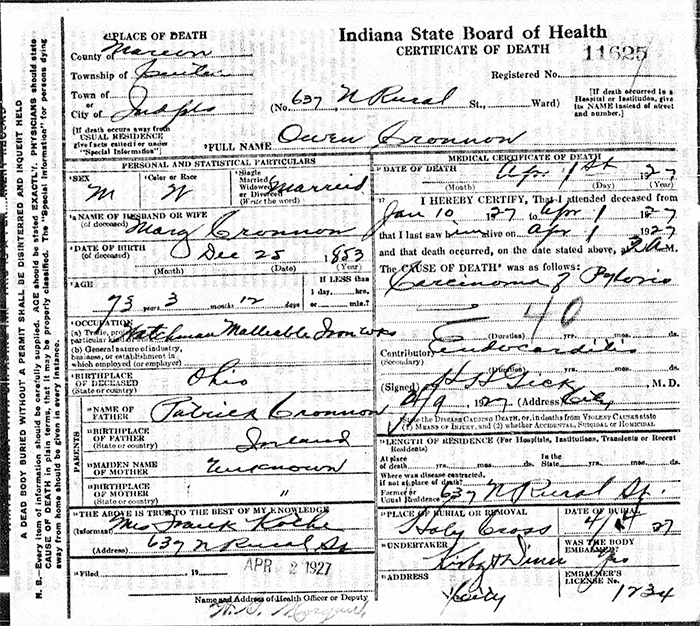 Indiana State Board of Health
CERTIFICATE OF DEATH
11625
Registered No.
PLACE OF DEATH
County of Marion
Township of Center
Town of
or
City of Indpls
(No. 637 N Rural St., Ward)
[If death occurred in a Hospital or Institution, give its NAME instead of street and number.]
[If death occurs away from USUAL RESIDENCE give facts called for under "Special Information"]
FULL NAME Owen Cronnon
PERSONAL AND STATISTICAL PARTICULARS
SEX M
Color or Race W
Single Married Widowed or Divorced (Write the word) Married
NAME OF HUSBAND OR WIFE (of deceased) Mary Cronnon
DATE OF BIRTH (of deceased) Dec 25 1853
(Month) (Date) (Year)
AGE
If LESS than 1 day, hrs. or min.?
73 years 3 months 12 days
OCCUPATION
(a) Trade, profession or particular kind of work Watchman Malleable Iron Wks
(b) General nature of industry, business, or establishment in which employed (or employer)
BIRTHPLACE OF DECEASED (State or country) Ohio
PARENTS
NAME OF FATHER Patrick Cronnon
BIRTHPLACE OF FATHER (State or country) Ireland
MAIDEN NAME OF MOTHER Unknown
BIRTHPLACE OF MOTHER (State or country) "
THE ABOVE IS TRUE TO THE BEST OF MY KNOWLEDGE
(Informant) Mrs Frank
(Address) 637 N Rural St
Filed 19 APR 2 1927
Name and Address of Health Officer or Deputy
MEDICAL CERTIFICATE OF DEATH
DATE OF DEATH Apr 1st 1927
(Month) (Day) (Year)
I HEREBY CERTIFY, That I attended deceased from
Jan 10 1927 to Apr 1 1927
that I last saw him alive on Apr 1 1927
and that death occurred, on the date stated above, at M.
The CAUSE OF DEATH* was as follows:
Carcinoma of Pyloris
40
(Duration) yrs. mos. ds.
Contributory (Secondary) Endocarditis
(Duration) yrs. mos. ds.
(Signed) M. D.
4/9 1927 (Address) City
State the DISEASE CAUSING DEATH, or, in deaths from VIOLENT CAUSES state (1) MEANS OF INJURY, and (2) whether ACCIDENTAL, SUICIDAL or HOMICIDAL.
LENGTH OF RESIDENCE (For Hospitals, Institutions, Transients or Recent Residents)
At place of death yrs. mos. ds. In the State yrs. mos. ds.
Where was disease contracted, if not at place of death?
Former or Usual Residence 637 N Rural St.
PLACE OF BURIAL OR REMOVAL Holy Cross
DATE OF BURIAL 4/4 27
UNDERTAKER
WAS THE BODY EMBALMED? Yes
ADDRESS City
EMBALMER'S LICENSE No. 1234
A DEAD BODY BURIED WITHOUT A PERMIT SHALL BE DISINTERRED AND INQUEST HELD
N. B.—Every item of information should be carefully supplied. AGE should be stated EXACTLY. PHYSICIANS should state CAUSE OF DEATH in plain terms, that it may be properly classified. The "Special Information" for persons dying away from home should be given in every instance.